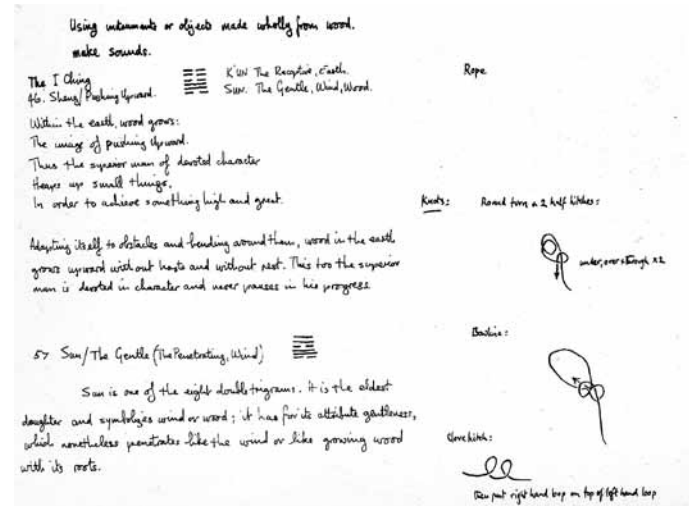 Using instruments or objects made wholly from wood.
make sounds.
The I Ching
46. Sheng/Pushing Upward.
K'UN The Receptive, Earth.
SUN. The Gentle, Wind, Wood.
Within the earth, wood grows:
The image of pushing Upward.
Thus the superior man of devoted character
Heaps up small things,
In order to achieve something high and great.
Adapting itself to obstacles and bending around them, wood in the earth
grows upward without haste and without rest. This too the superior
man is devoted in character and never pauses in his progress
57 Sun/The Gentle (The Penetrating, Wind)
Sun is one of the eight double trigrams. it is the eldest
daughter and symbolizes wind or wood; it has for its attribute gentleness,
which nonetheless penetrates like the wind or like growing wood
with its roots.
Rope
Knots:
Round turn & 2 half hitches:
under, over & through x2
Bowline:
Clove hitch:
Then put right hand loop on top of left hand loop